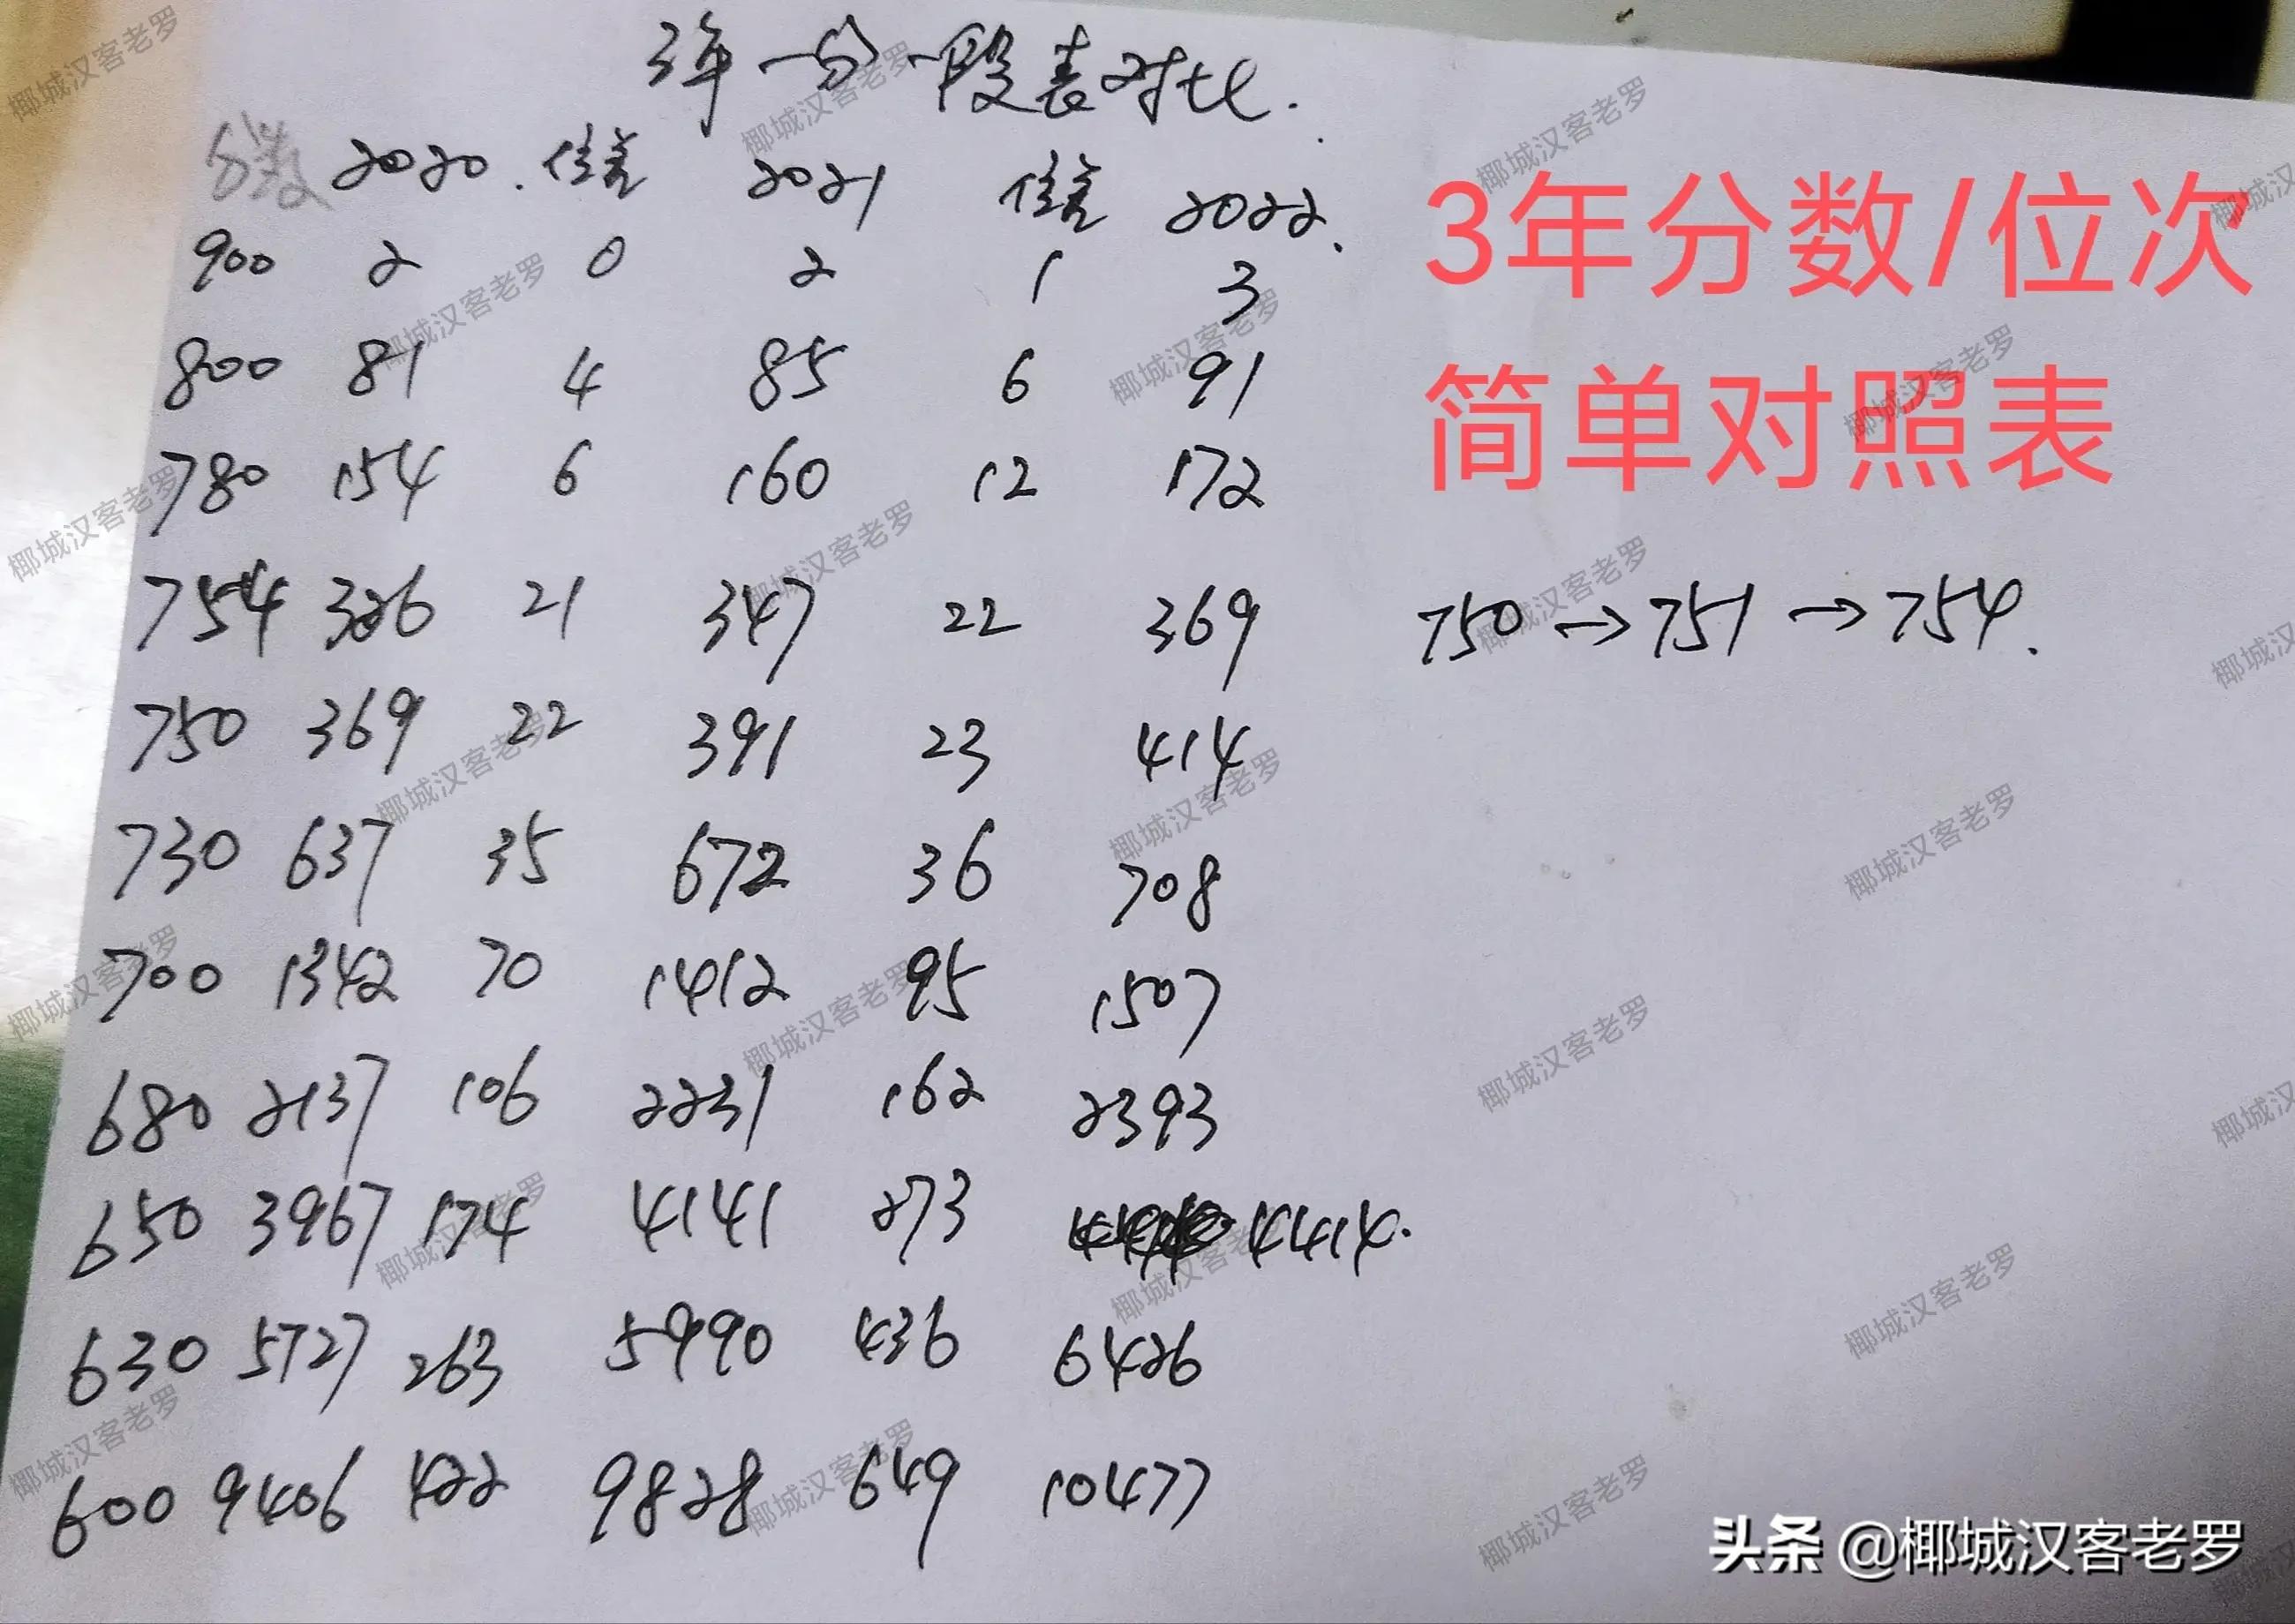 3年一分一段表对比.
分数 2020. 位差 2021 位差 2022.
900 2 0 2 1 3
800 81 4 85 6 91
780 154 6 160 12 172
754 326 21 347 22 369
750→751→754.
750 369 22 391 23 414
730 637 35 672 36 708
700 1342 70 1412 95 1507
680 2137 106 2231 162 2393
650 3967 174 4141 273 4414.
630 5727 263 5990 436 6426
600 9406 422 9828 649 10477
3年分数/位次
简单对照表
头条 @椰城汉客老罗
椰城汉客老罗